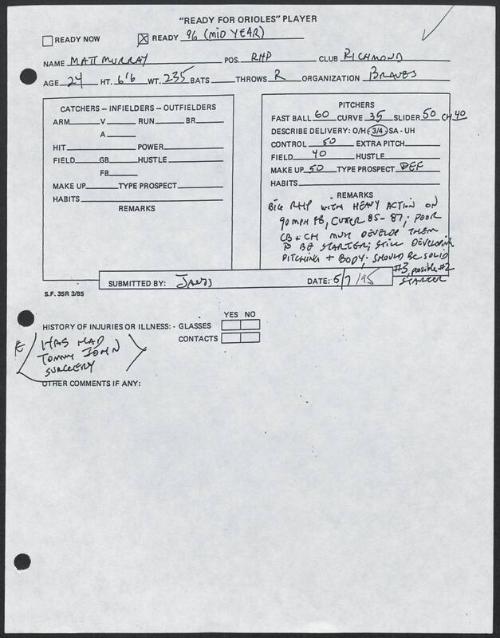 "READY FOR ORIOLES" PLAYER
READY NOW ☒ READY 96 (MID YEAR)
NAME MATT MURRAY POS. RHP CLUB RICHMOND
AGE 24 HT. 6'6 WT. 235 BATS THROWS R ORGANIZATION BRAVES
CATCHERS – INFIELDERS – OUTFIELDERS
ARM V RUN BR
A
HIT POWER
FIELD GB HUSTLE
FB
MAKE UP TYPE PROSPECT
HABITS
REMARKS
PITCHERS
FAST BALL 60 CURVE 35 SLIDER 50 CH 40
DESCRIBE DELIVERY: O/H 3/4 SA - UH
CONTROL 50 EXTRA PITCH
FIELD 40 HUSTLE
MAKE UP 50 TYPE PROSPECT DEF
HABITS
REMARKS
BIG RHP WITH HEAVY ACTION ON
90 MPH FB, CUTTER 85-87; POOR
CB + CH MUST DEVELOP THEM
TO BE STARTER; STILL DEVELOPING
PITCHING + BODY; SHOULD BE SOLID
#3, possible #2
STARTER
SUBMITTED BY: DATE: 5/7/95
S.F. 35R 3/85
YES NO
HISTORY OF INJURIES OR ILLNESS: - GLASSES
CONTACTS
HAS HAD
TOMMY JOHN
SURGERY
OTHER COMMENTS IF ANY: